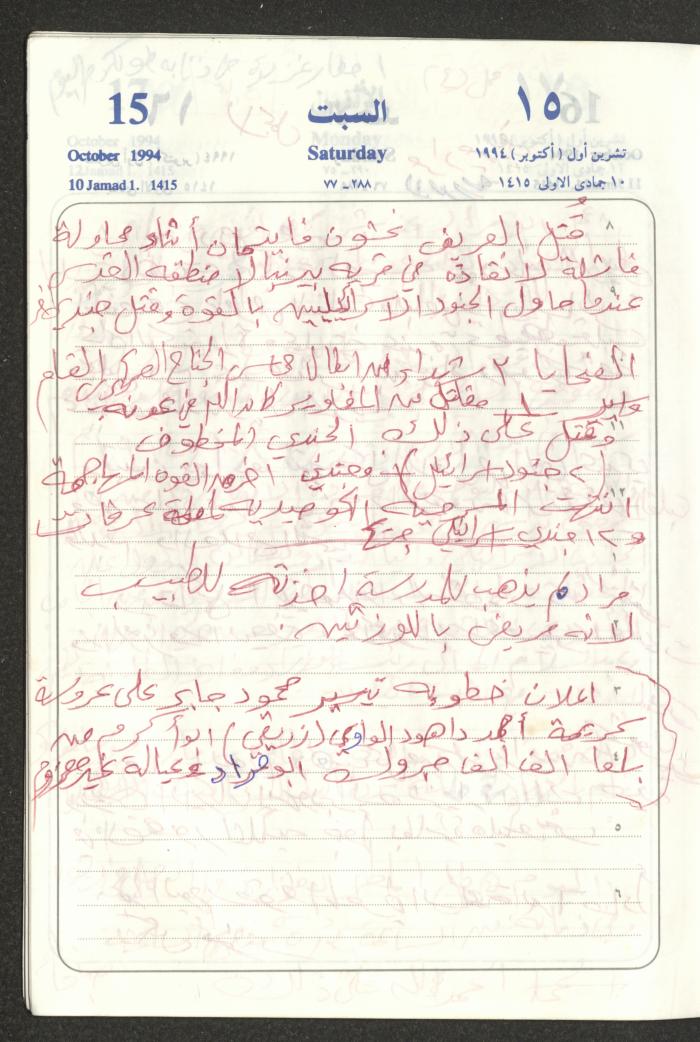 15 السبت ١٥
October 1994 Saturday تشرين أول ( أكتوبر ) ١٩٩٤
10 Jamad 1. 1415 ٢٨٨ ــ ٧٧ ١٠ جمادى الاولى ١٤١٥
قُتل العريف نخشون فاكسمان أثناء محاولة
فاشلة لانقاذه في قريه بيرنبالا منطقه القدس
عندما حاول الجنود الاسرائيليين بالقوة وقتل جندي
الضحايا ٢ شهداء من ابطال حماس الجناح العسكري القسام
مقاتل من
وقتل على ذلك الجندي المخطوف
(٢ جنود اسرائيل) وجندي آخر من القوه المهاجمة
انتهت المسرحيه
و١٢ جندي اسرائيلي جرح
مراد لم يذهب للمدرسة اخذته للطبيب
لانه مريض باللوزتين .
اعلان خطوبه تيسير محمود جابر على عروسة
كريمة أحمد داهود الواوي (زريقي) ابو أكرم من
يافا الف الف مبروك ابو مراد وعيالة
٨
٩
١١
١٢
٣
٤
٥
٦